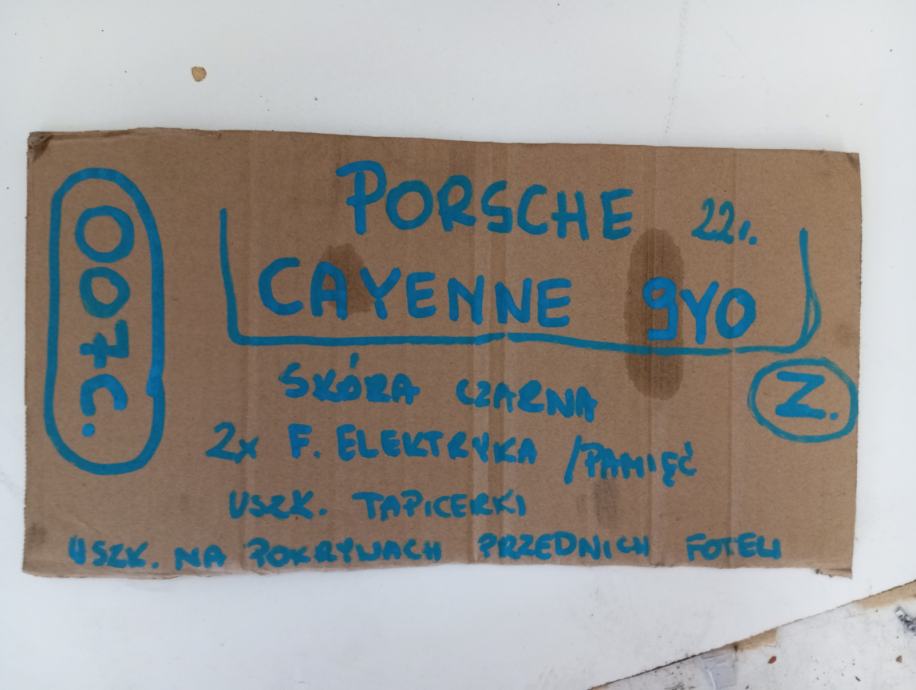 PORSCHE 22r.
CAYENNE 9YO
SKÓRA CZARNA
2x F. ELEKTRYKA /PAMIĘĆ
USZK. TAPICERKI
USZK. NA POKRYWACH PRZEDNICH FOTELI
N.